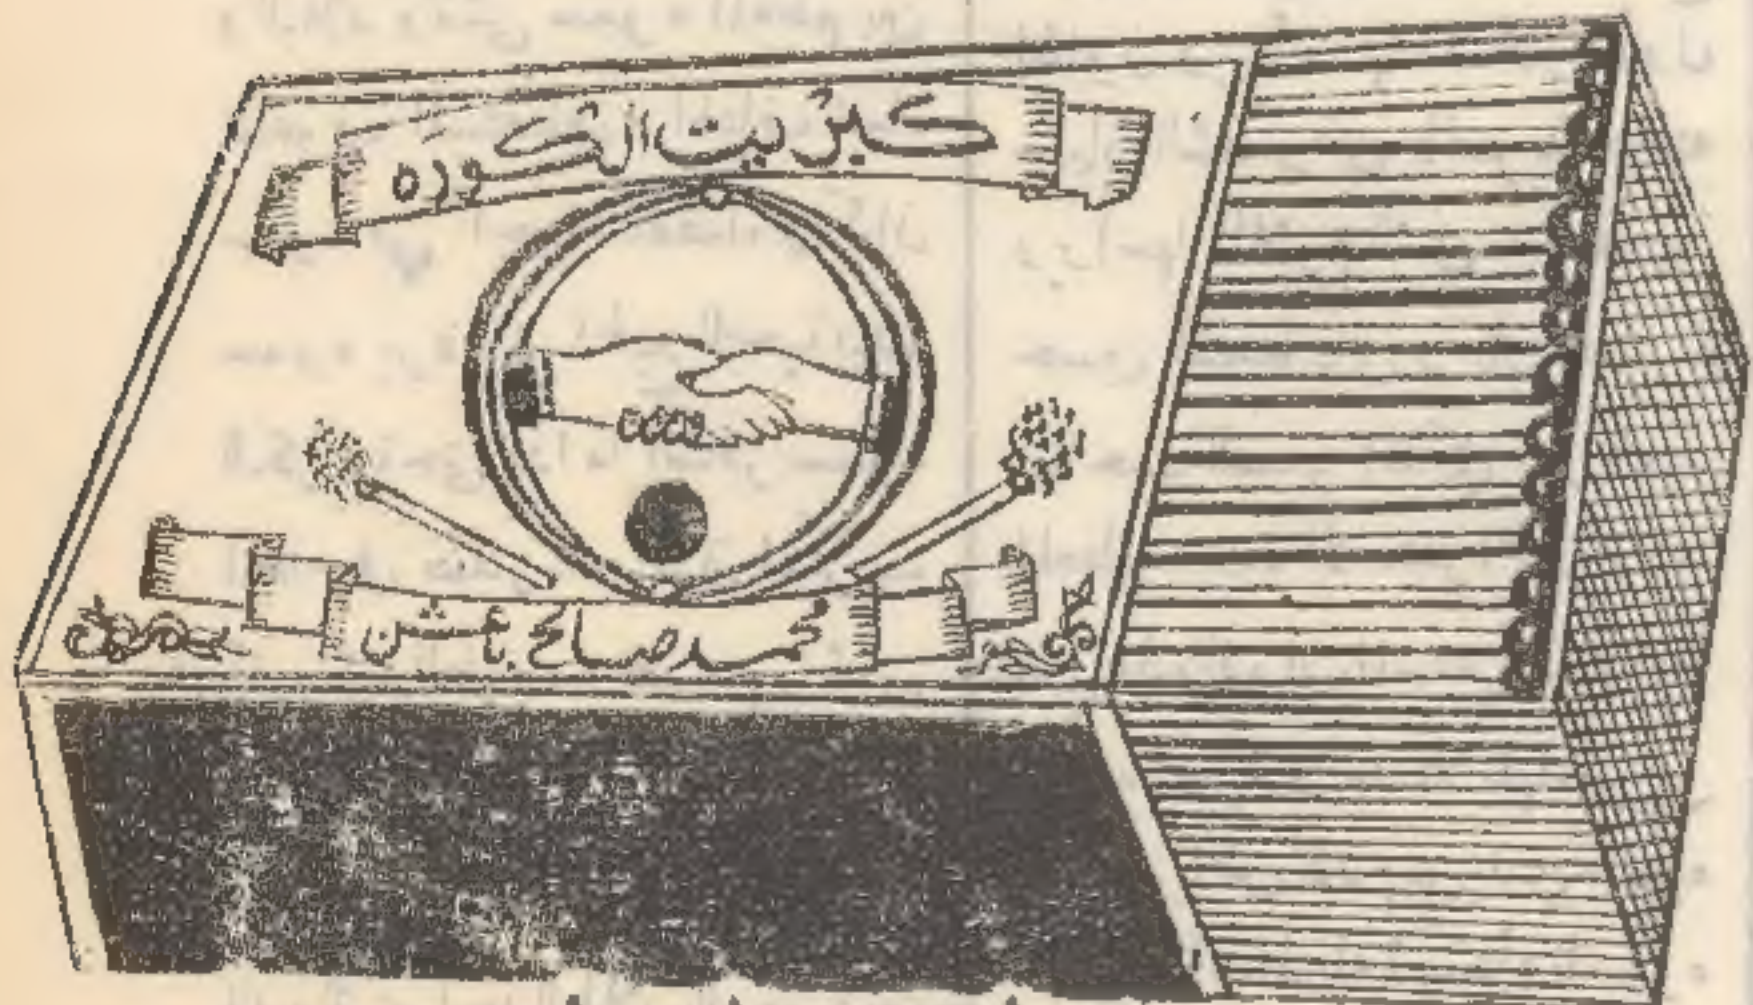 كبريت الكورة
محمد صالح باعشن